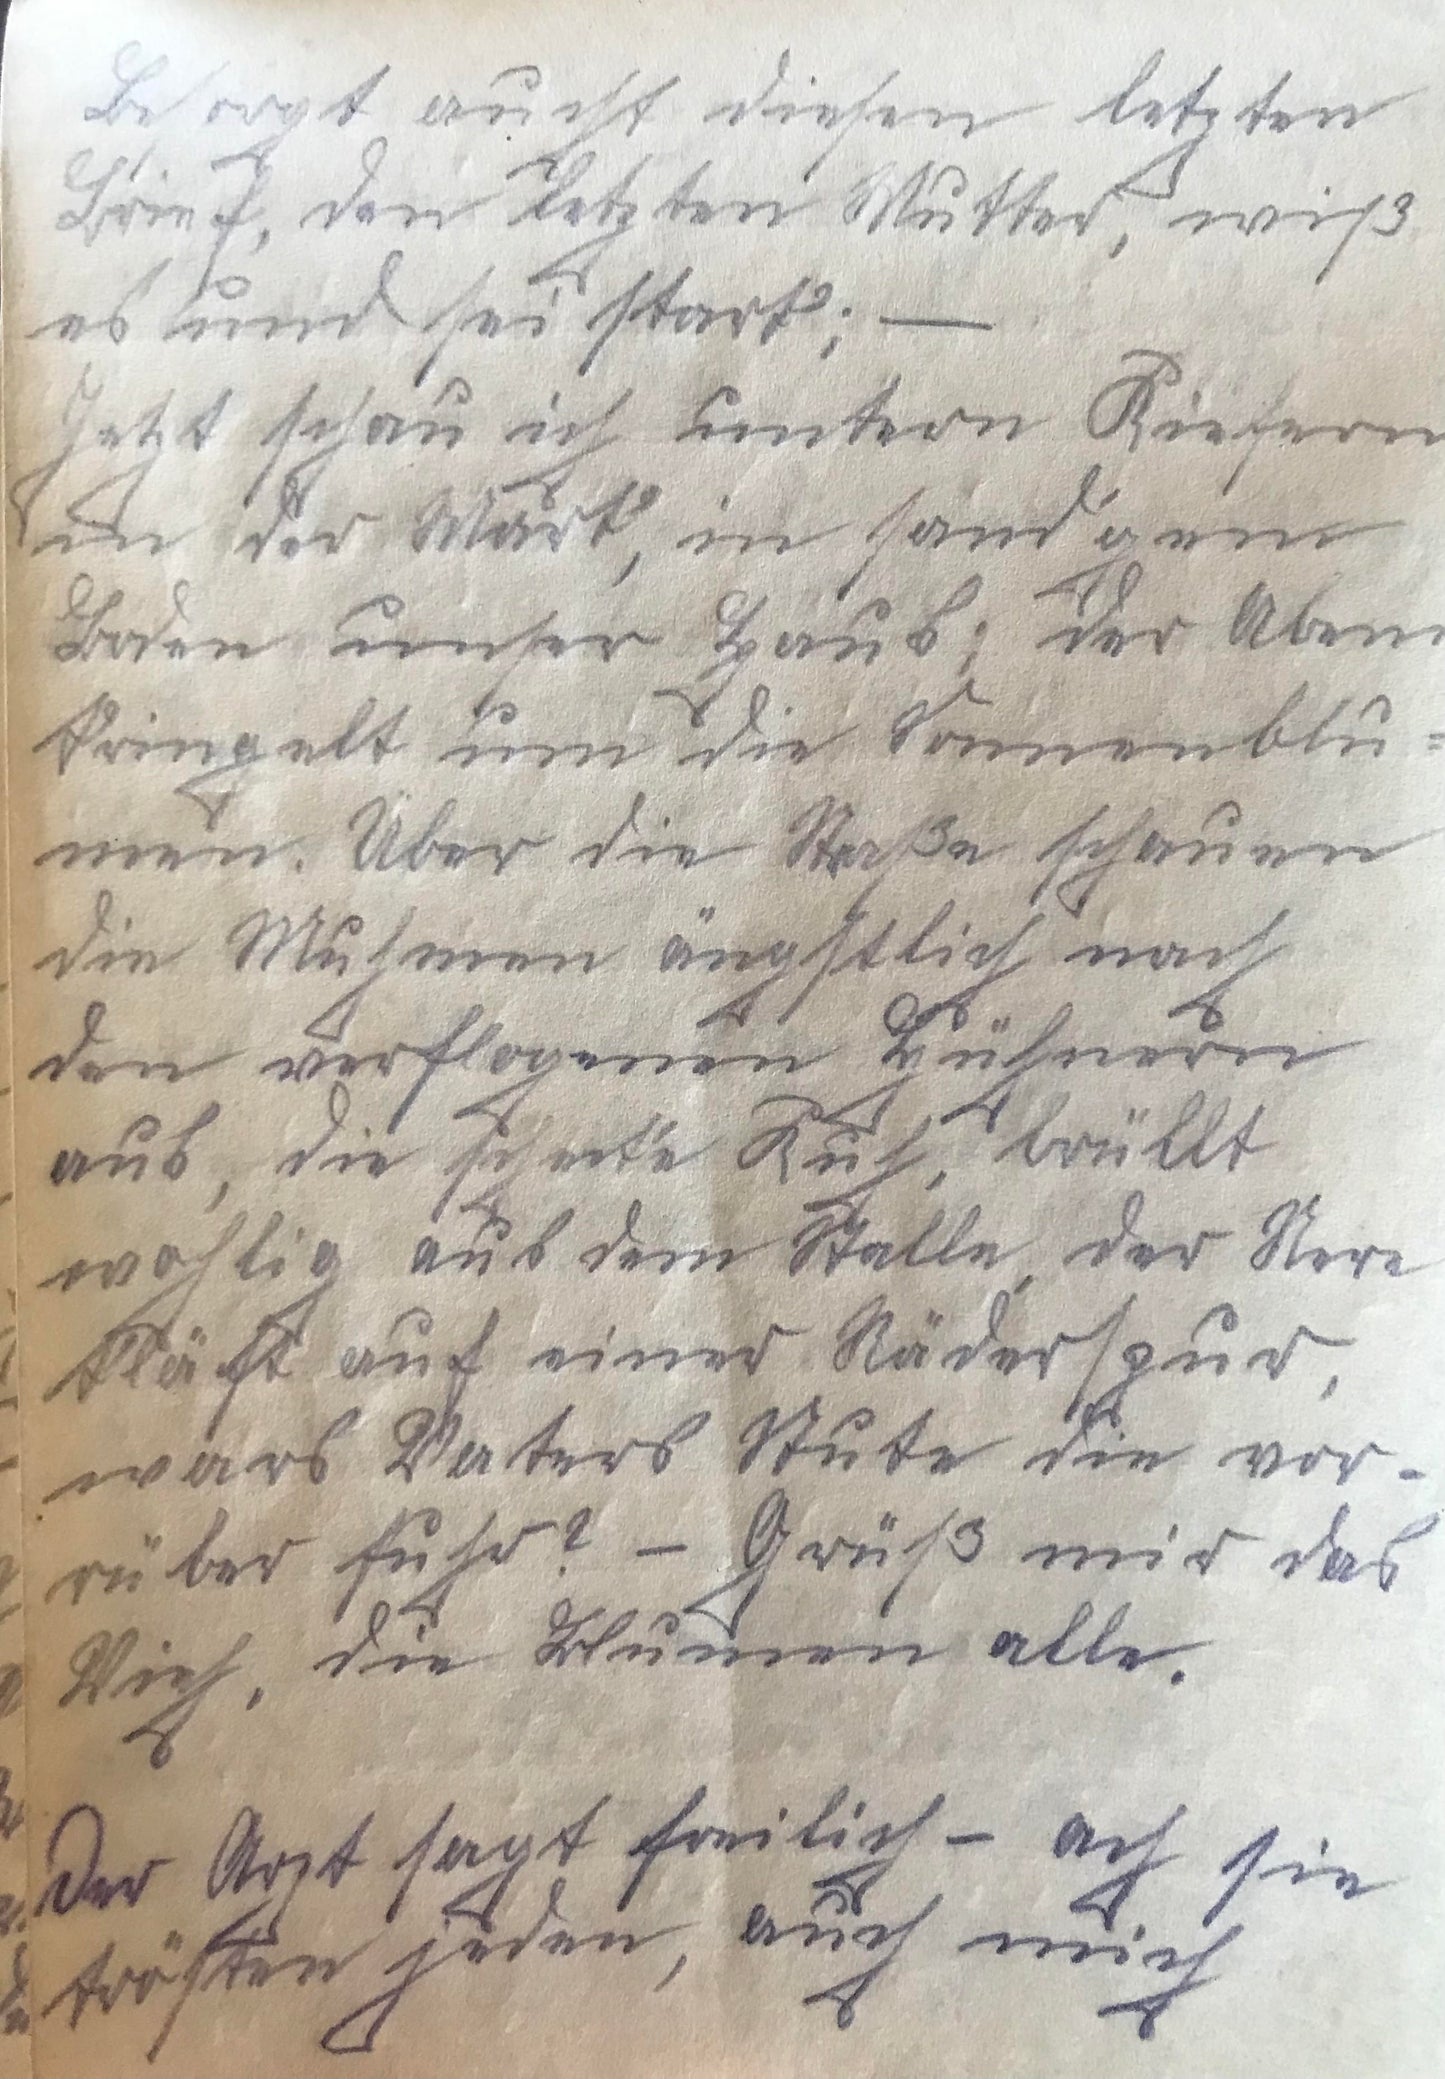 Besorgt auch diesen letzten
Brief, den letzten Mutter, wiß
es und sei stark; —
Jetzt schau ich untern Kiefern
in der Mark, in sand'gem
Boden unser Haus; der Aben
kringelt um die Sonnenblu=
men. Über die Straße schauen
die Muhmen ängstlich nach
den verflogenen Hühnern
aus, die scheck'e Kuh, brüllt
wohlig aus dem Stalle, der Nero
kläfft auf einer Räderspur,
wars Vaters Stute die vor-
rüber fuhr? – Grüß mir das
Vieh, die Blumen alle.
Der Arzt sagt freilich – ach sie
trösten jeden, auch mich